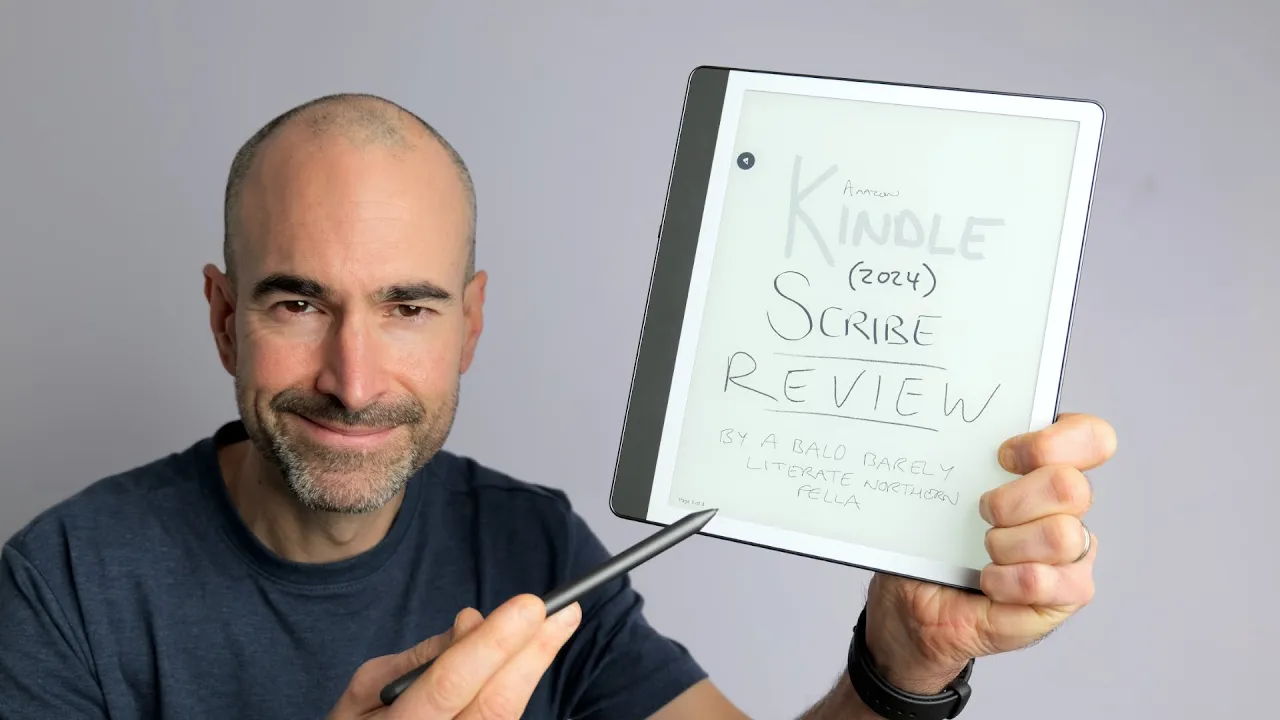 Amazon
KINDLE
(2024)
SCRIBE
REVIEW
BY A BALD BARELY
LITERATE NORTHERN
FELLA